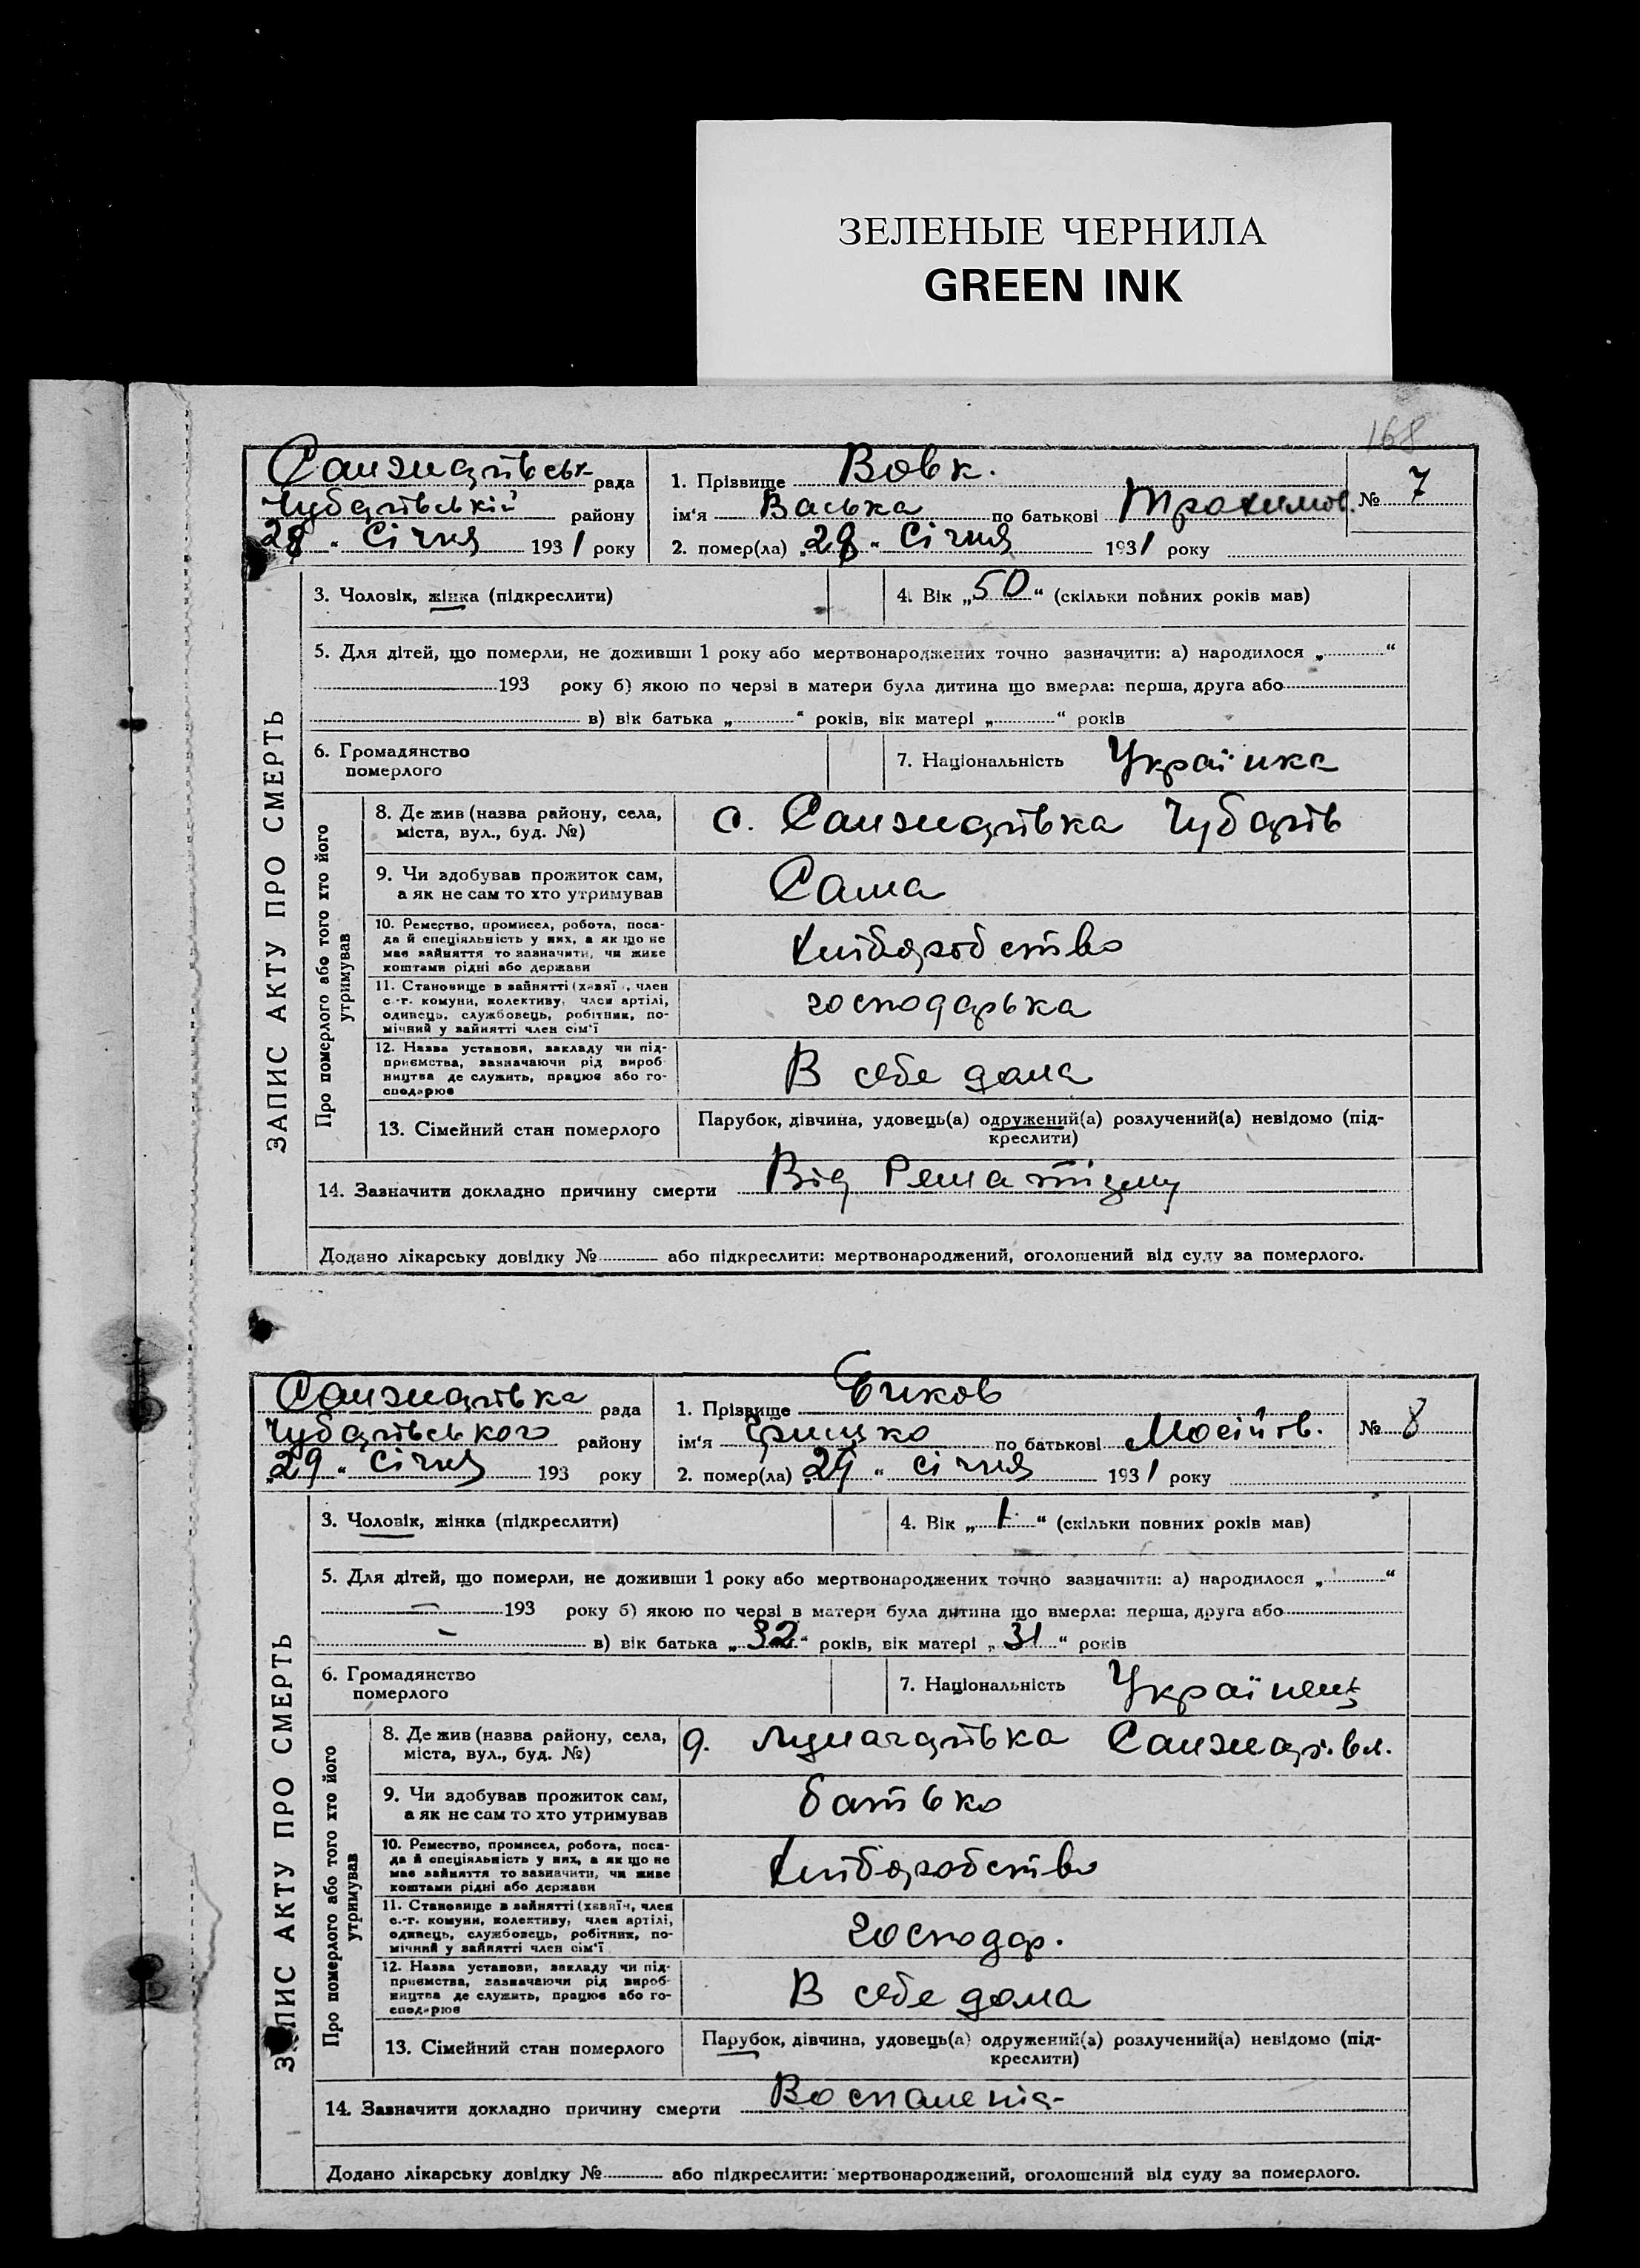 ЗЕЛЕНЫЕ ЧЕРНИЛА
GREEN INK
168
Санжарівськ рада
Чубарівській району
28 " Січня 1931 року
1. Прізвище Вовк.
ім'я Васька по батькові Трохимов. № 7
2. помер(ла) „28" Січня 1931 року
ЗАПИС АКТУ ПРО СМЕРТЬ
3. Чоловік, жінка (підкреслити)
4. Вік „50" (скільки повних років мав)
5. Для дітей, що померли, не доживши 1 року або мертвонароджених точно зазначити: а) народилося „ "
193 року б) якою по черзі в матери була дитина що вмерла: перша, друга або
в) вік батька „ " років, вік матері „ " років
6. Громадянство
померлого
7. Національність Українка
Про померлого або того хто його
утримував
8. Де жив (назва району, села,
міста, вул., буд. №)
с. Санжарівка Чубарів
9. Чи здобував прожиток сам,
а як не сам то хто утримував
Сама
10. Ремество, промисел, робота, поса-
да й спеціяльність у них, а як що не
має зайняття то зазначити, чи живе
коштами рідні або держави
Хліборобство
11. Становище в зайнятті (хазяї , член
с.-г. комуни, колективу, член артілі,
одинець, службовець, робітник, по-
мічний у зайнятті член сім'ї
господарька
12. Назва установи, закладу чи під-
приємства, зазначаючи рід вироб-
ництва де служить, працює або го-
сподарює
В себе дома
13. Сімейний стан померлого
Парубок, дівчина, удовець(а) одружений(а) розлучений(а) невідомо (під-
креслити)
14. Зазначити докладно причину смерти Від Ревматізму
Додано лікарську довідку № або підкреслити: мертвонароджений, оголошений від суду за померлого.
Санжарівка рада
Чубарівського району
„29" Січня 193 року
1. Прізвище Бчков
ім'я Грицько по батькові Мосійов. № 8
2. помер(ла) „29" січня 1931 року
ЗАПИС АКТУ ПРО СМЕРТЬ
3. Чоловік, жінка (підкреслити)
4. Вік „1" (скільки повних років мав)
5. Для дітей, що померли, не доживши 1 року або мертвонароджених точно зазначити: а) народилося „ "
— 193 року б) якою по черзі в матери була дитина що вмерла: перша, друга або
— в) вік батька „32" років, вік матері „31" років
6. Громадянство
померлого
7. Національність Українець
Про померлого або того хто його
утримував
8. Де жив (назва району, села,
міста, вул., буд. №)
д. Луначарівка Санжар.
9. Чи здобував прожиток сам,
а як не сам то хто утримував
батько
10. Ремество, промисел, робота, поса-
да й спеціяльність у них, а як що не
має зайняття то зазначити, чи живе
коштами рідні або держави
Хліборобство
11. Становище в зайнятті (хазяїн, член
с.-г. комуни, колективу, член артілі,
одинець, службовець, робітник, по-
мічний у зайнятті член сім'ї
господар.
12. Назва установи, закладу чи під-
приємства, зазначаючи рід вироб-
ництва де служить, працює або го-
сподарює
В себе дома
13. Сімейний стан померлого
Парубок, дівчина, удовець(а) одружений(а) розлучений(а) невідомо (під-
креслити)
14. Зазначити докладно причину смерти Воспаленія
Додано лікарську довідку № або підкреслити: мертвонароджений, оголошений від суду за померлого.